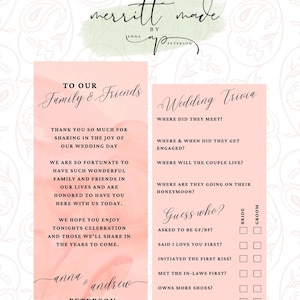 merritt made
BY
ANNA
ap
PETERSON
TO OUR
Family & Friends
THANK YOU SO MUCH FOR
SHARING IN THE JOY OF
OUR WEDDING DAY
WE ARE SO FORTUNATE TO
HAVE SUCH WONDERFUL
FAMILY AND FRIENDS IN
OUR LIVES AND ARE
HONORED TO HAVE YOU
HERE WITH US TODAY.
WE HOPE YOU ENJOY
TONIGHTS CELEBRATION
AND THOSE WE'LL SHARE IN
THE YEARS TO COME.
anna & andrew
PETERSON
Wedding Trivia
WHERE DID THEY MEET?
WHERE & WHEN DID THEY GET
ENGAGED?
WHERE WILL THE COUPLE LIVE?
WHERE ARE THEY GOING ON THEIR
HONEYMOON?
Guess who?
BRIDE
GROOM
ASKED TO BE GF/BF?
SAID I LOVE YOU FIRST?
INITIATED THE FIRST KISS?
MET THE IN-LAWS FIRST?
OWNS MORE SHOES?